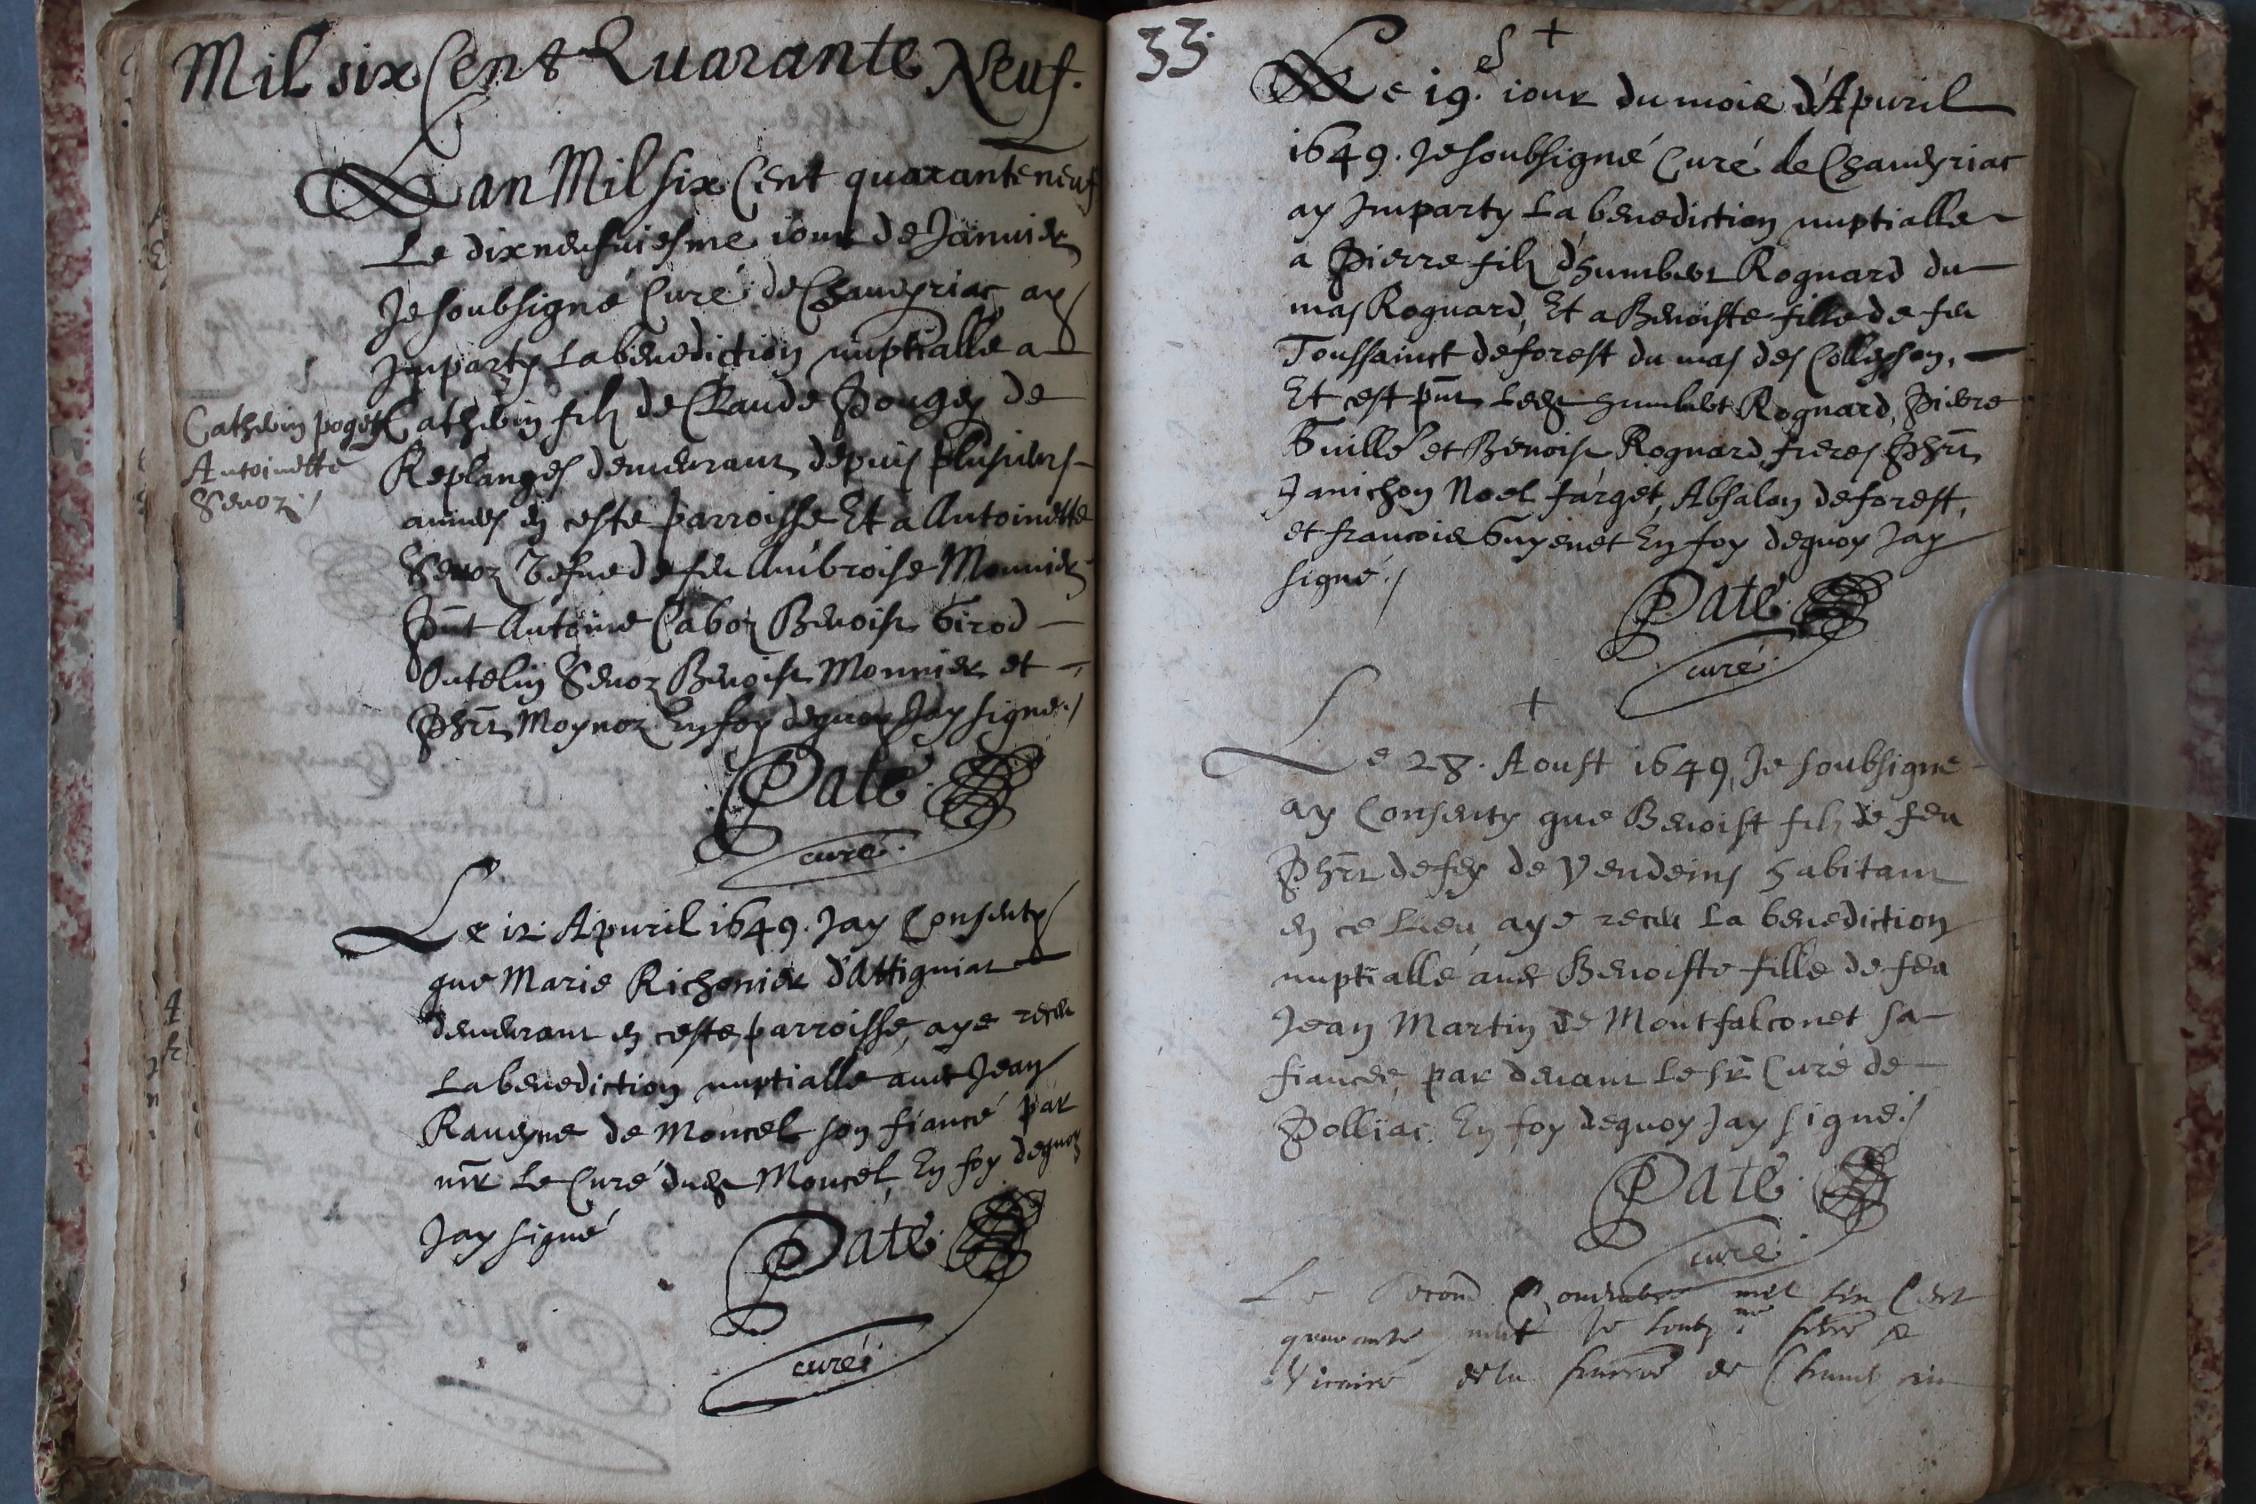 Mil six Cent Quarante Neuf.
Lan Mil six Cent quarante neuf
Le dixneufuiesme iour de Januier
Je soubsigné Curé de Chaueyriac ay
Imparty La benediction nuptialle a
Catherin filz de Claude Pougey de
Replanges demeurant depuis plusieurs
années en ceste parroisse Et a Antoinette
Seuoz Vefue de feu Ambroise Monnier
Pnt Antoine Caboz Benoist Girod
Antelin Seuoz Benoist Monnier et
Phrt Moynoz En foy dequoy Jay signe./
Paté
curé.
Catherin pogey
Antoinette
Seuoz./
Le 12. Apuril 1649. Jay Consenty
que Marie Richonier d'Attigniat
demeurant en ceste parroisse, aye receu
La benediction nuptialle auec Jean
Raueyne de Moncel son fiancé par
mr Le Curé dud Moncel, En foy dequoy
Jay signé
Paté
curé.
33.
Le 19.e iour du mois d'Apuril
1649. Je soubsigné Curé de Chaueyriac
ay Imparty La benediction nuptialle
a Pierre filz d'humbert Rognard du
mas Rognard, Et a Benoiste fille de feu
Toussainct deforest du mas des Colleyson,
Et est pnt Led humbert Rognard, Pierre
Guille et Benoist Rognard freres Phrt
Janichon Noel farget, Absalon deforest,
et francois Guyenet En foy dequoy Jay
signé./
Paté
curé.
Le 28. Aoust 1649, Je soubsigne
ay Consenty que Benoist filz de feu
Phrt defey de Vendeins habitant
en ce Lieu, aye receu La benediction
nuptialle auec Benoiste fille de feu
Jean Martin de Montfalconet sa
fiancée, par deuant Le sr Curé de
Polliac. En foy dequoy Jay signe./
Paté
curé
Le Second mil six Cent
quarante neuf Je soubz ne
Vicaire de la de